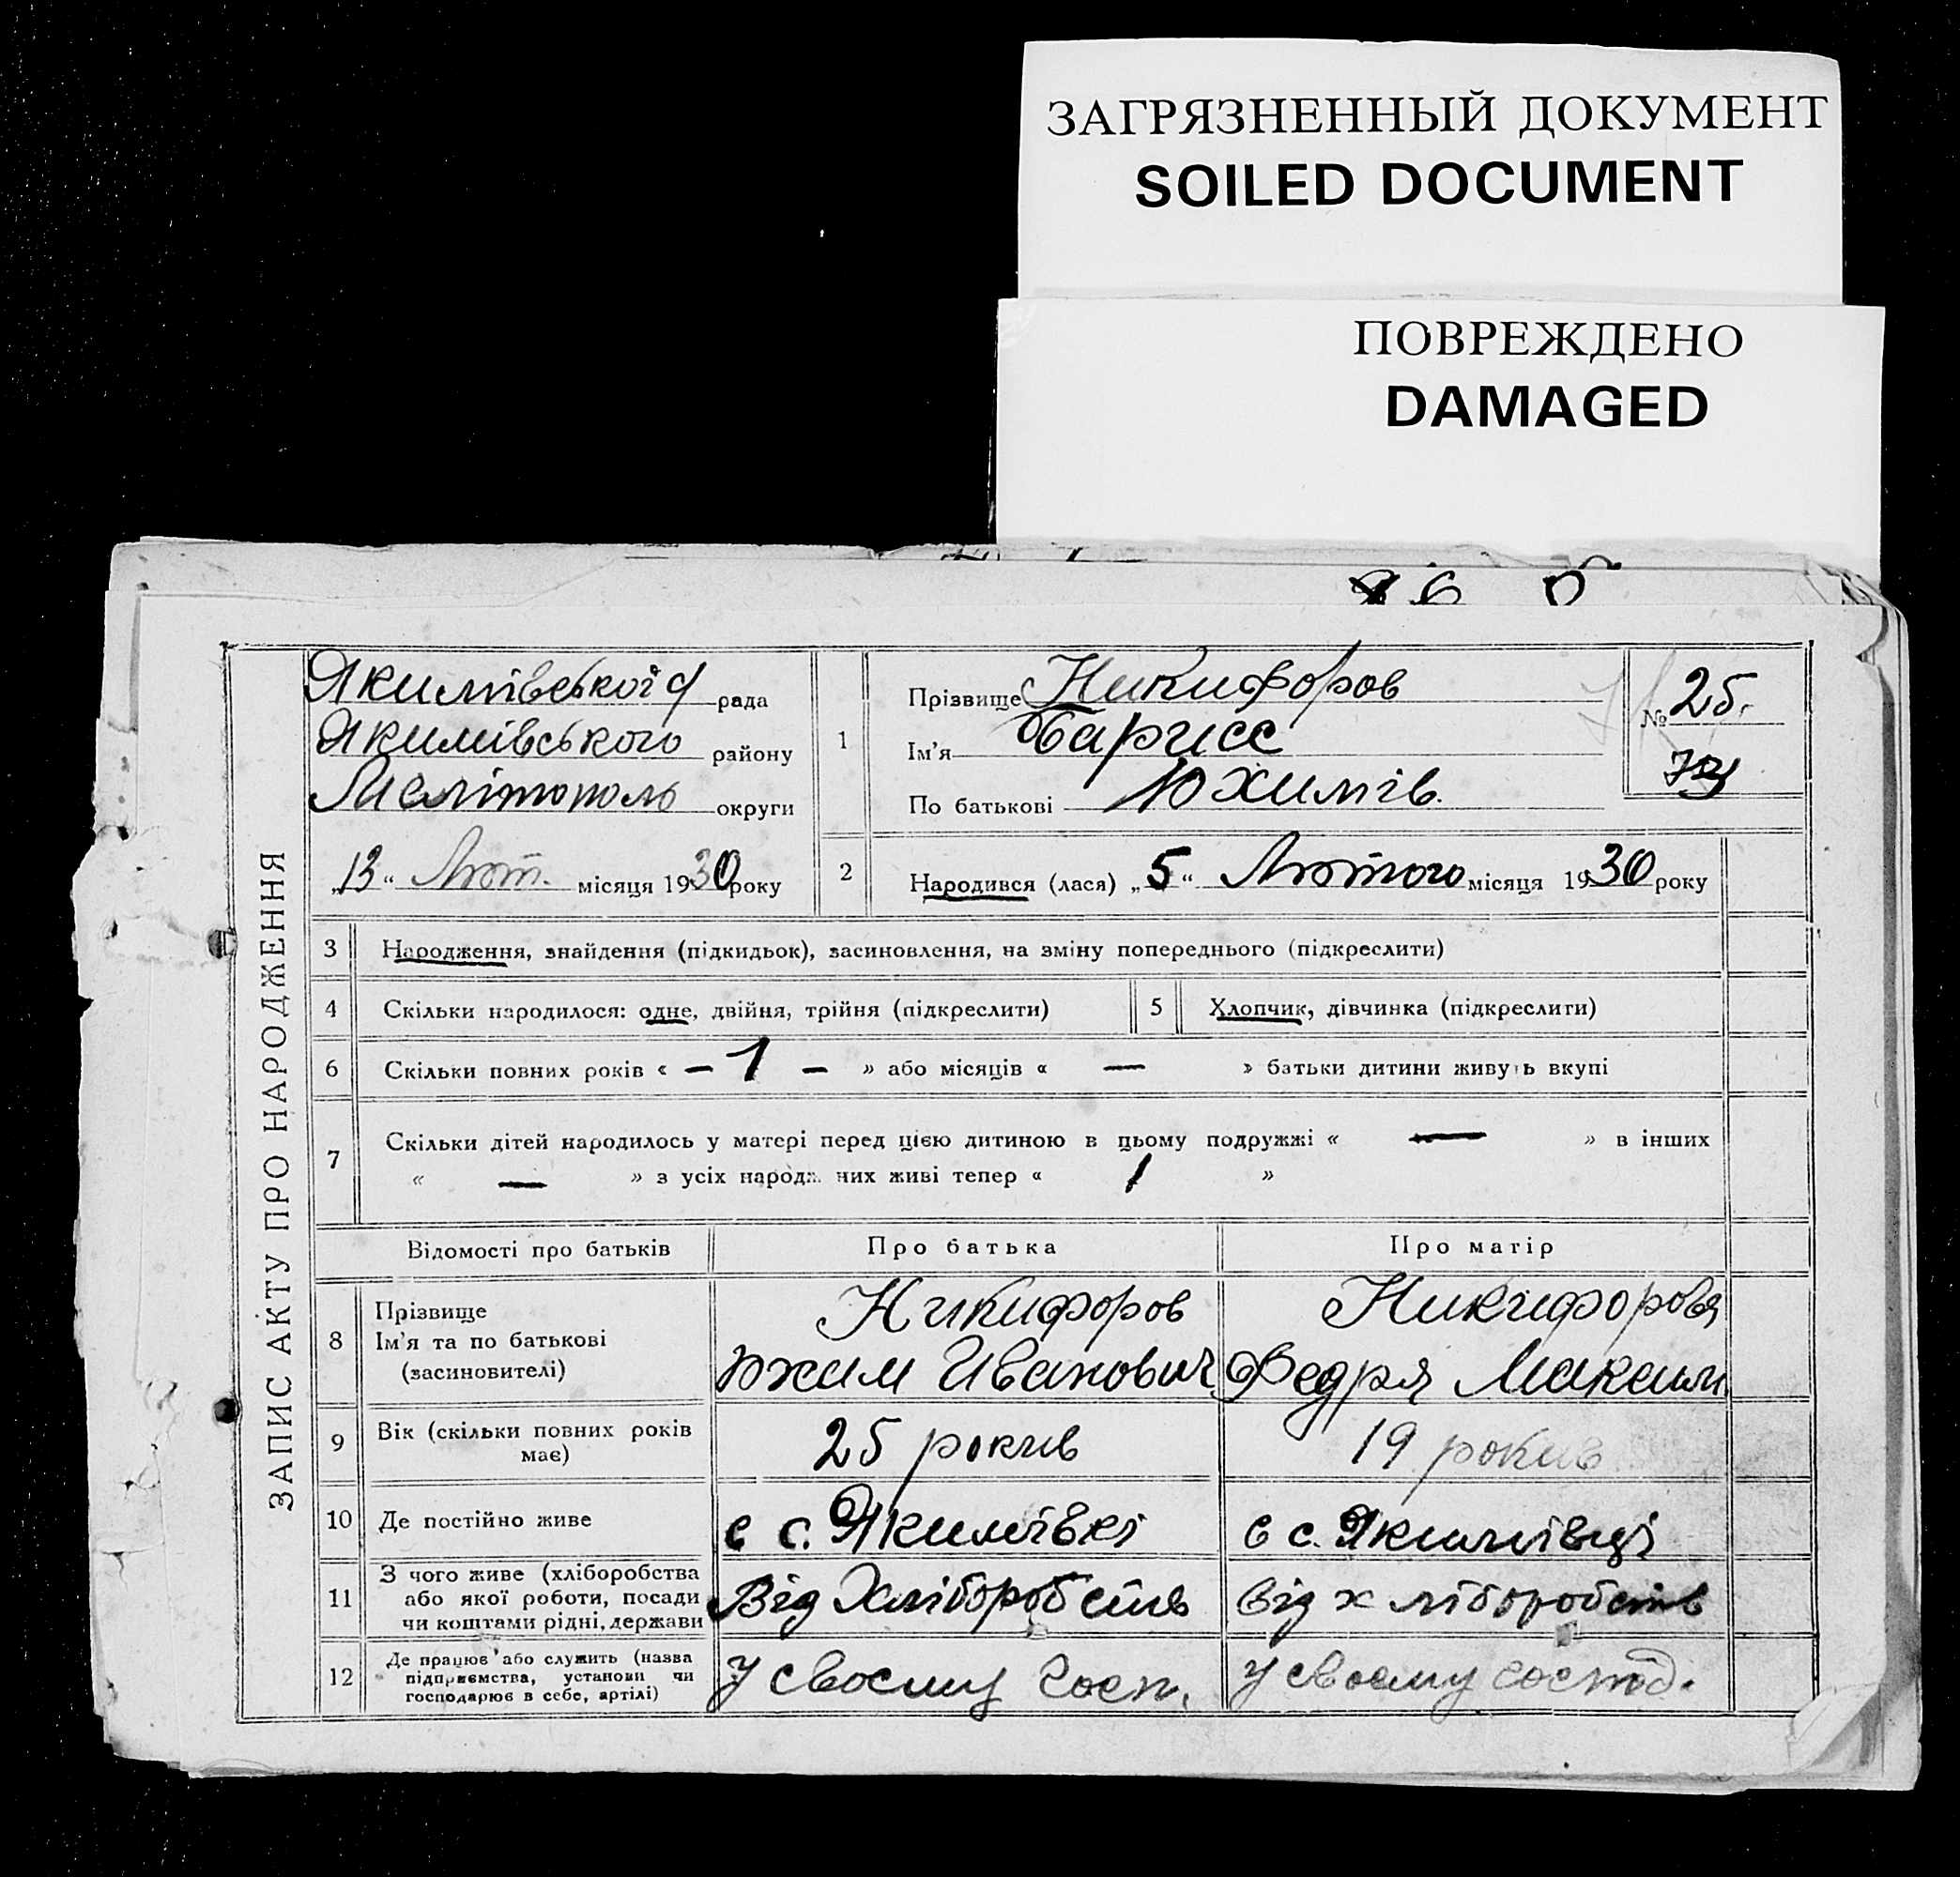 ЗАГРЯЗНЕННЫЙ ДОКУМЕНТ
SOILED DOCUMENT
ПОВРЕЖДЕНО
DAMAGED
ЗАПИС АКТУ ПРО НАРОДЖЕННЯ
Якимівської рада
Якимівського району
Мелітополь округи
„13“ Лют. місяця 1930 року
1
Прізвище Никифоров
Ім'я Барисс
По батькові Юхимів.
№ 25.
2
Народився (лася) „5“ Лютого місяця 1930 року
3 Народження, знайдення (підкидьок), засиновлення, на зміну попереднього (підкреслити)
4 Скільки народилося: одне, двійня, трійня (підкреслити)
5 Хлопчик, дівчинка (підкреслити)
6 Скільки повних років « – 1 – » або місяців « — » батьки дитини живуть вкупі
7 Скільки дітей народилось у матері перед цією дитиною в цьому подружжі « — » в інших
« — » з усіх народж. них живі тепер « 1 »
Відомості про батьків Про батька Про матір
8 Прізвище
Ім'я та по батькові
(засиновителі)
Никифоров
Юхим Иванович
Никифорова
Федря Максим.
9 Вік (скільки повних років
має)
25 рокив
19 рокив
10 Де постійно живе
в с. Якимівкі
в с. Якимівці
11 З чого живе (хліборобства
або якої роботи, посади
чи коштами рідні, держави
Від Хліборобств
від хліборобств
12 Де працює або служить (назва
підприємства, установи чи
господарює в себе, артілі)
У своєму Госп.
У своєму господ.